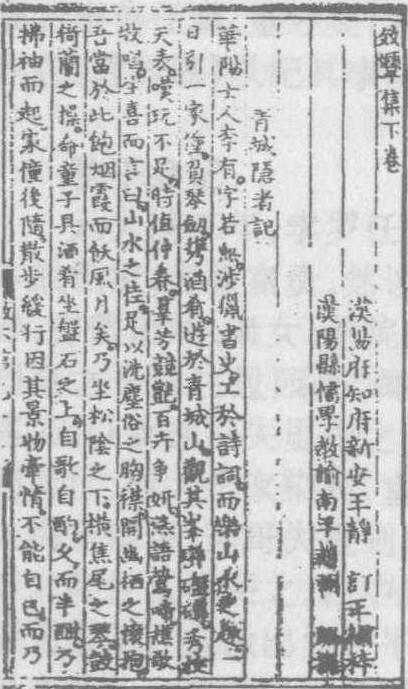 效顰集下卷
漢陽府知府新安王靜訂正繡梓
漢陽縣儒學教諭南平趙弼
青城隱者記
華陽士人李有字若無涉獵書史工於詩詞而樂山水之趣一
日引一家僮負琴劍携酒肴遊於青城山觀其峯巒秀
天表嘆玩不足時值仲春羣芳競艷百卉爭妍燕語鶯啼樵歌
牧唱生喜而言曰山水之佳足以洗塵俗之胸襟開幽栖之懷抱
吾當於此飽烟霞而飫風月矣乃坐松陰之下橫焦尾之琴鼓
猗蘭之操命童子具酒肴坐盤石之上自歌自酌久而半酣乃
拂袖而起家僮後隨散步緩行因其景物牽情不能自已而乃